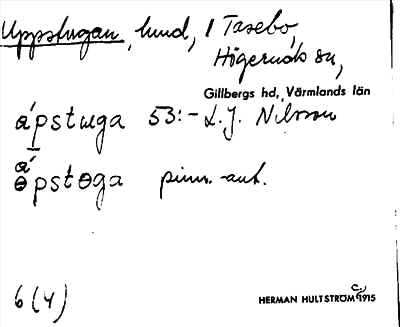 Uppstugan, lund, 1 Tasebo,
Högeruds sn,
Gillbergs hd, Värmlands län
ápstuga 53:- L.J. Nilsson
á
ɵpstɵga pinn. -aut.
6(4)
HERMAN HULTSTRÖM C:A 1915